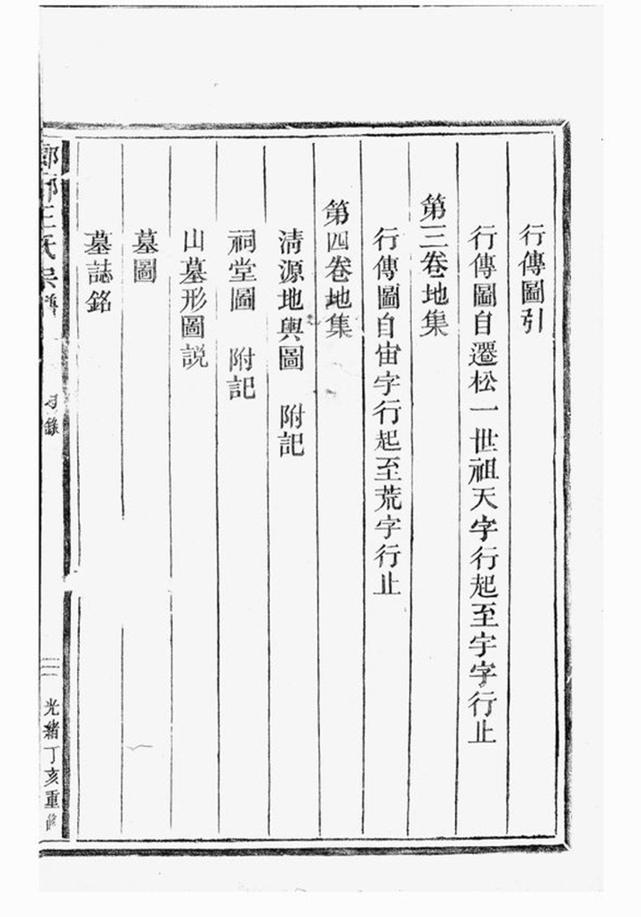 行傳圖引
行傳圖自遷松一世祖天字行起至宇字行止
第三卷地集
行傳圖自宙字行起至荒字行止
第四卷地集
清源地輿圖 附記
祠堂圖 附記
山墓形圖説
墓圖
墓誌銘
王氏宗譜
目錄
光緒丁亥重修